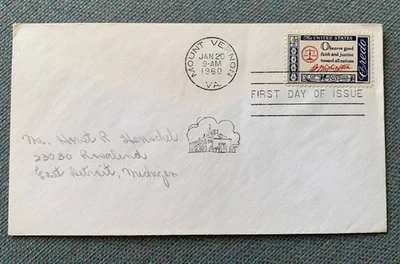 MOUNT VERNON
JAN 20
9-AM
1960
VA.
The UNITED STATES
Credo
Observe good
faith and justice
toward all nations
G Washington
FIRST DAY OF ISSUE
Mr. Horst R. Henschel
23030 Rosalind
East Detroit, Michigan